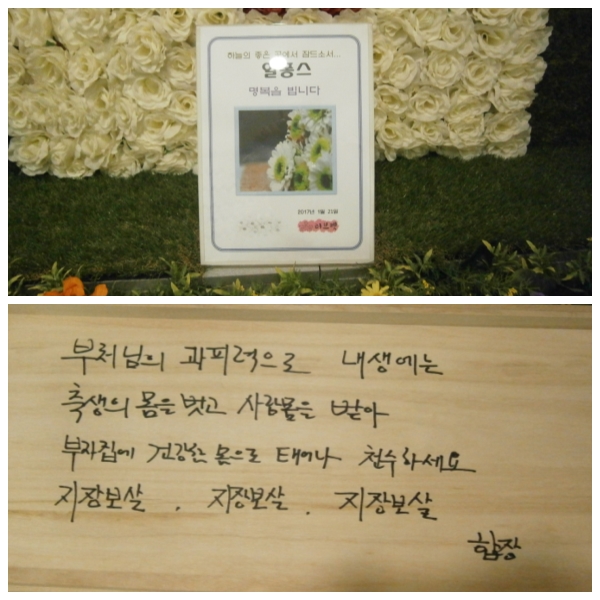 하늘의 좋은 곳에서 잠드소서...
알퐁스
명복을 빕니다
2017년 1월 21일
부처님의 과피력으로 내생에는
축생의 몸을 벗고 사람몸을 받아
부자집에 건강한 몸으로 태어나 천수하세요
지장보살 . 지장보살 . 지장보살
합장